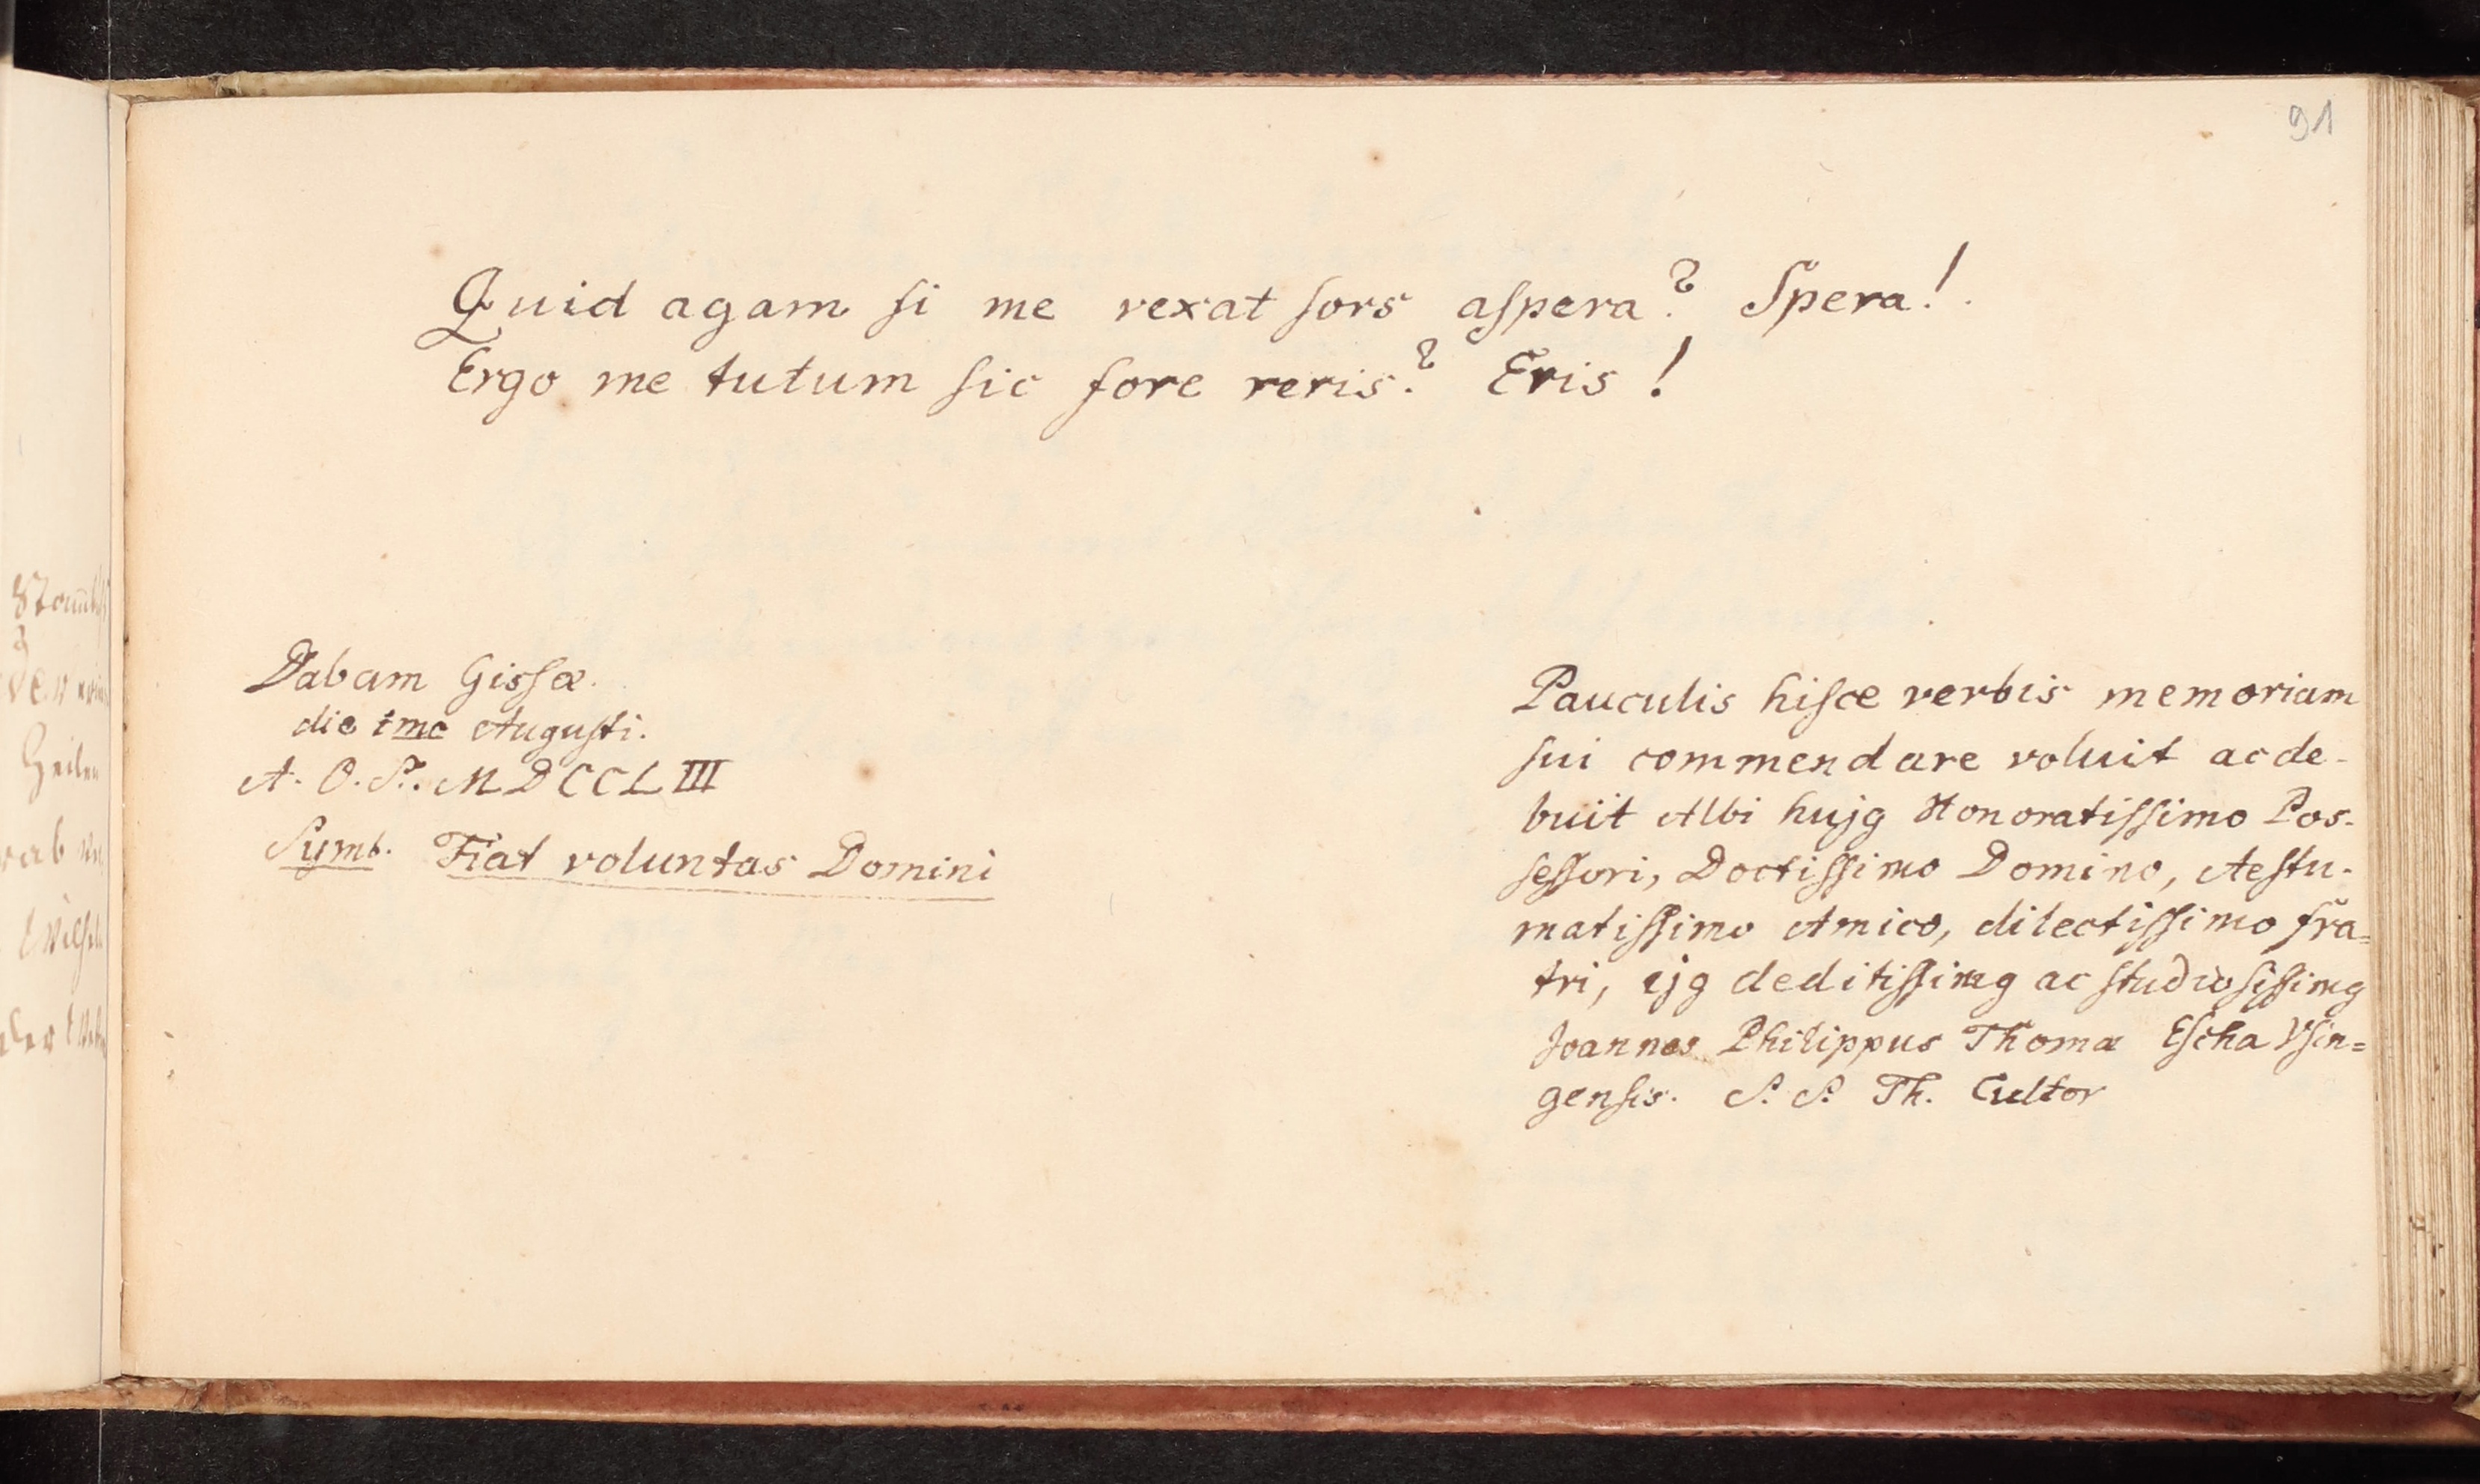 91
Quid agam ſi me vexat ſors aſpera? Spera!
Ergo me tutum ſic fore reris? Eris!
Dabam Giſſæ.
die 1mc Auguſti.
A. O. P. MDCCLIII
Symb. Fiat voluntas Domini
Pauculis hiſce verbis memoriam
ſui commendare voluit ac de-
buit Albi hujꝰ Honoratiſſimo Pos-
ſeſſori, Doctiſſimo Domino, Aeſtu-
matiſſimo Amico, dilectiſſimo fra=
tri, ejꝰ deditiſſimꝰ ac ſtudioſiſſimꝰ
Joannes Philippus Thomæ Eſcha Vſin=
genſis. S. S. Th. Cultor